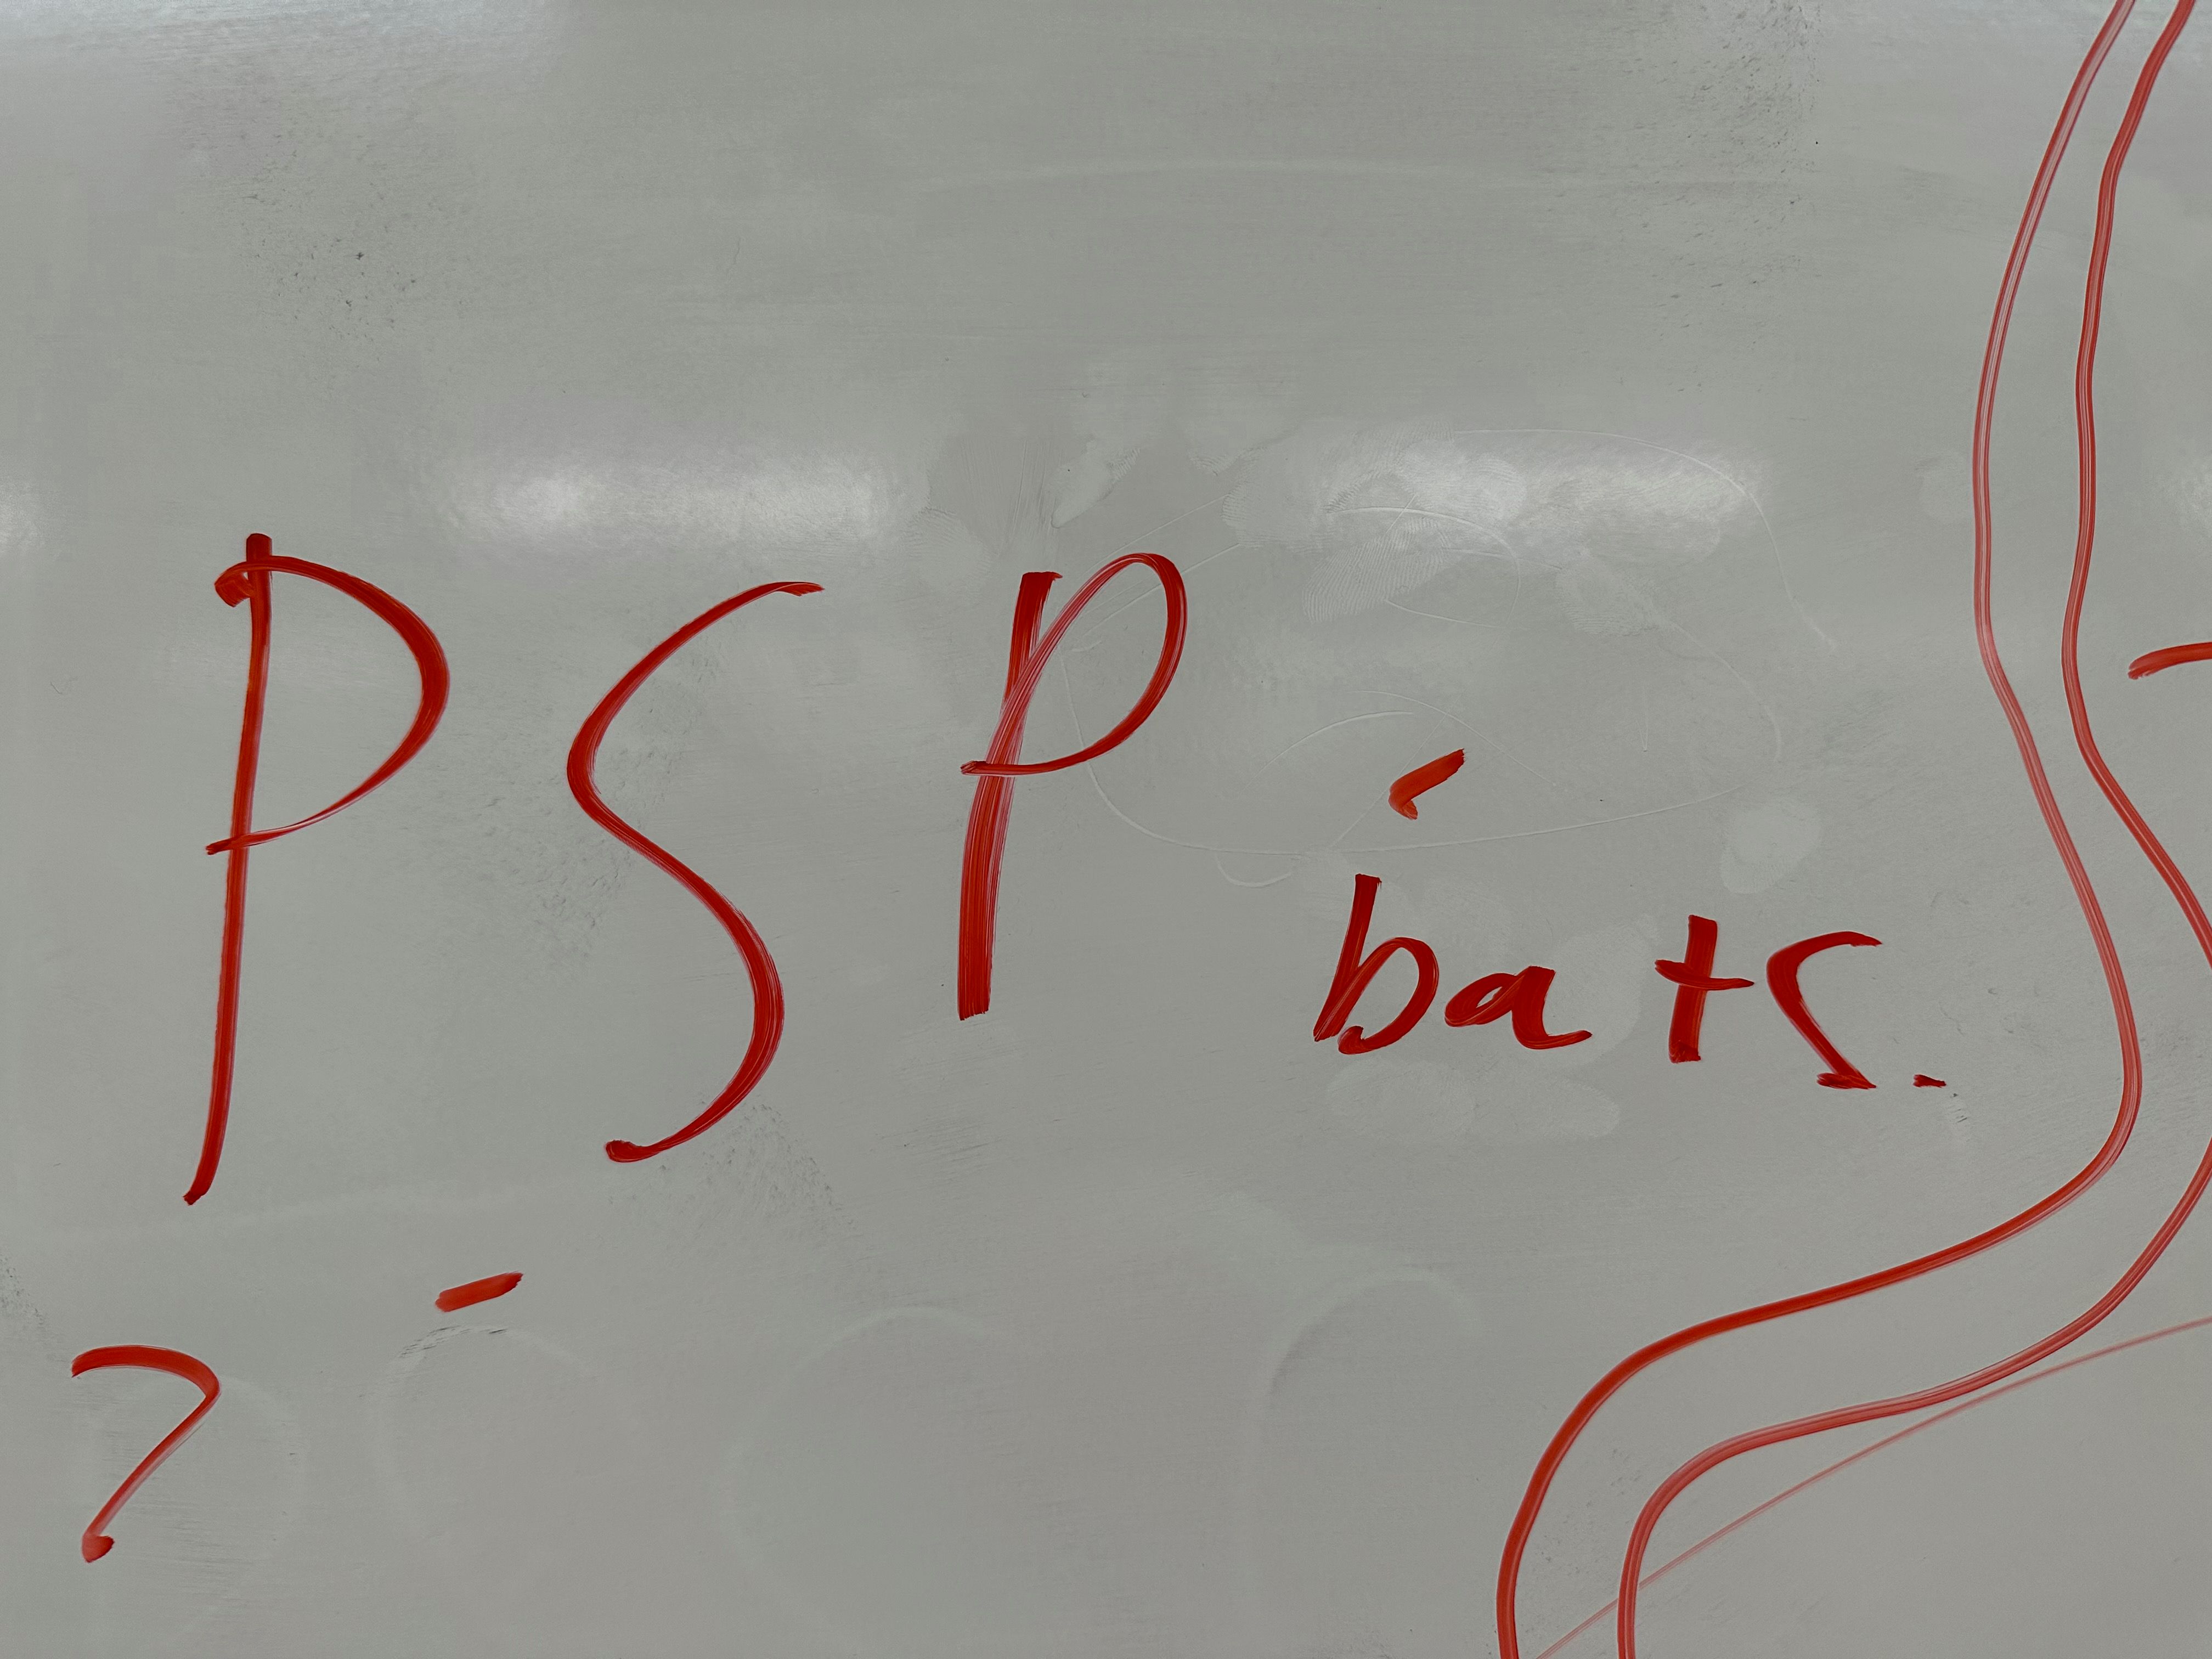 PSP
bats.
?